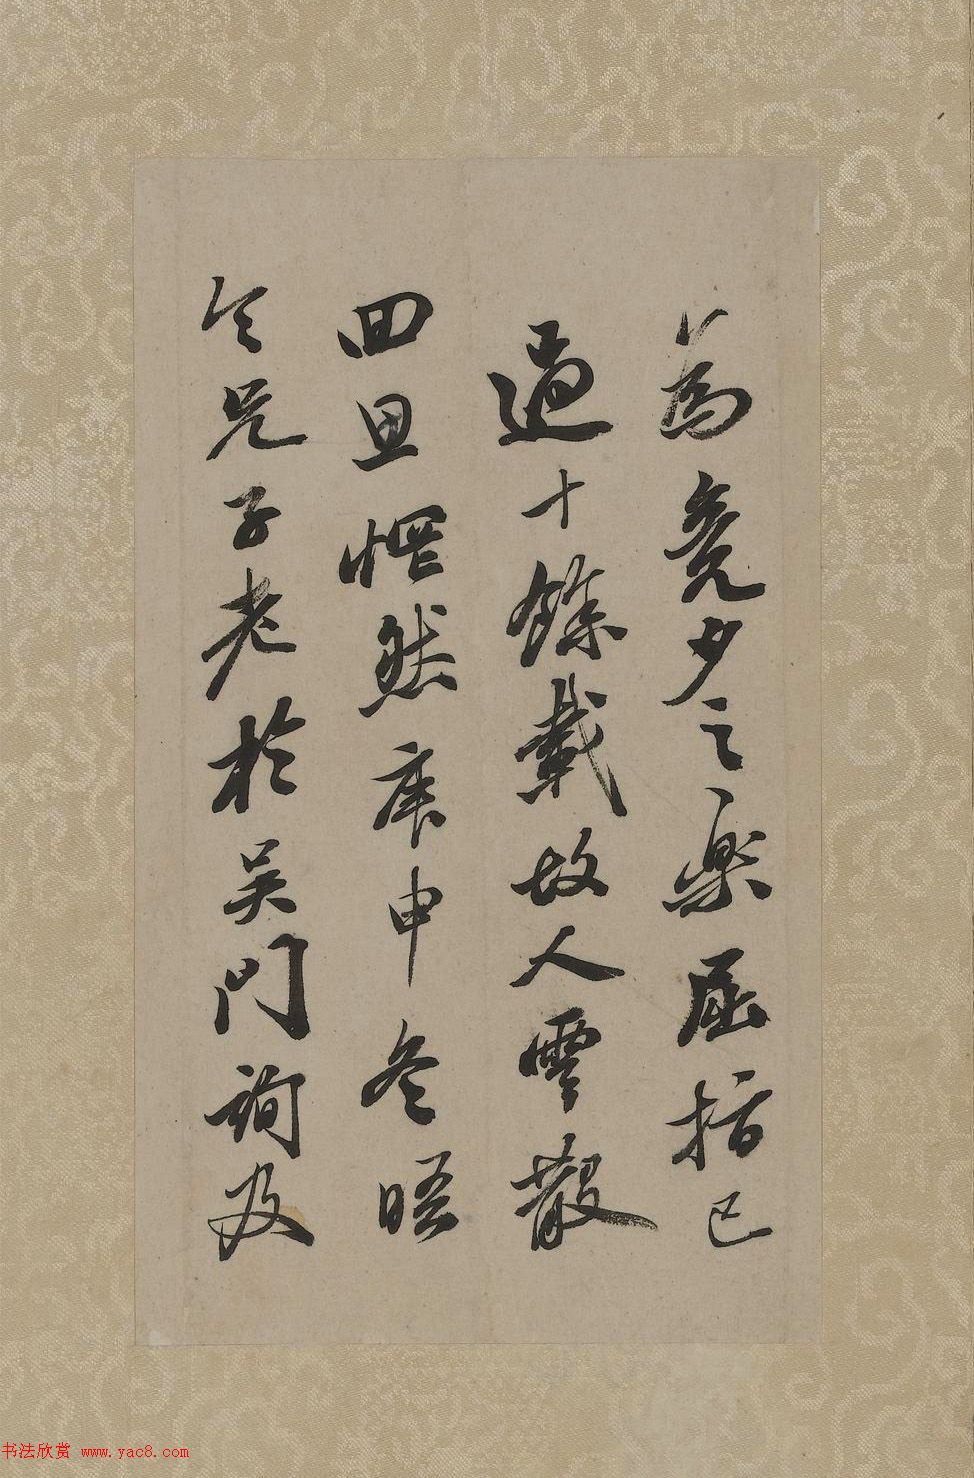 為竟夕之樂屈指已
過十餘載故人雲散
回思惘然庚申冬晤
令兄子老於吳門詢及
书法欣赏 www.yac8.com